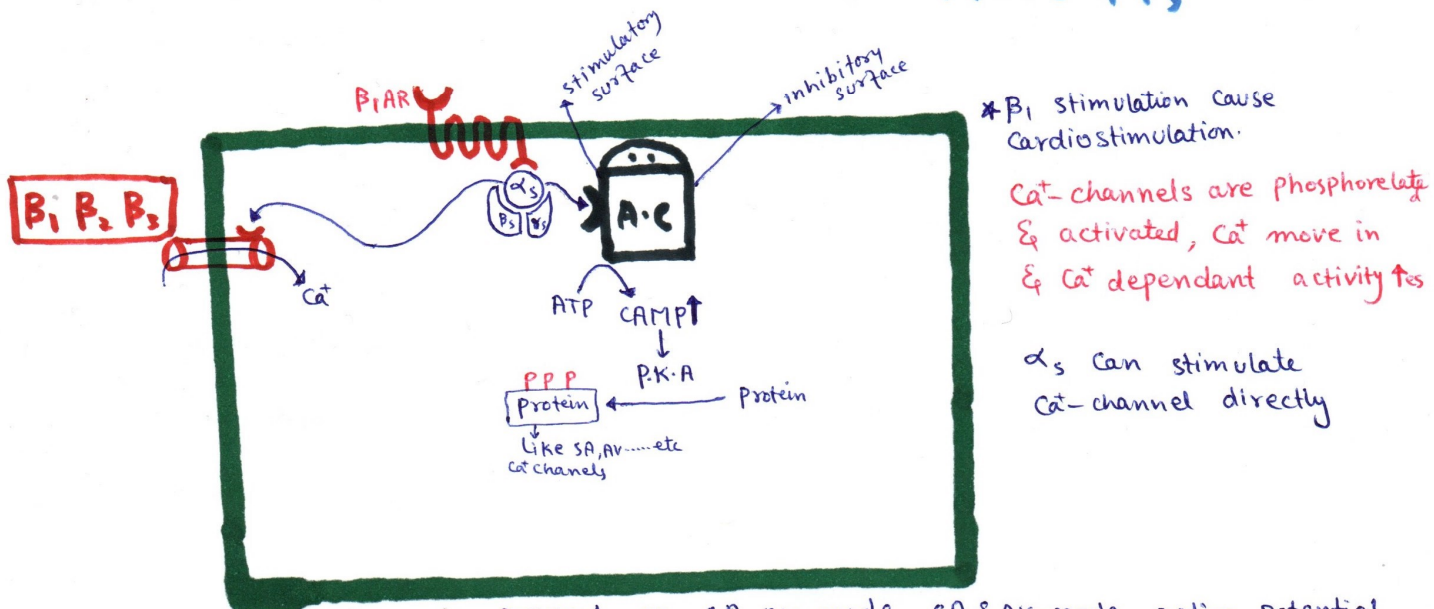 stimulatory
surface
inhibitory
surface
β₁AR
αs
βs γs
A·C
β₁ β₂ β₃
Ca⁺
ATP CAMP↑
P.K.A
P P P
Protein
Protein
Like SA, AV......etc
Ca⁺ chanels
*β₁ stimulation cause
Cardiostimulation.
Ca⁺- channels are phosphorelate
& activated, Ca⁺ move in
& Ca⁺ dependant activity ↑es
αs Can stimulate
Ca⁺- channel directly
SA & AV node action potential